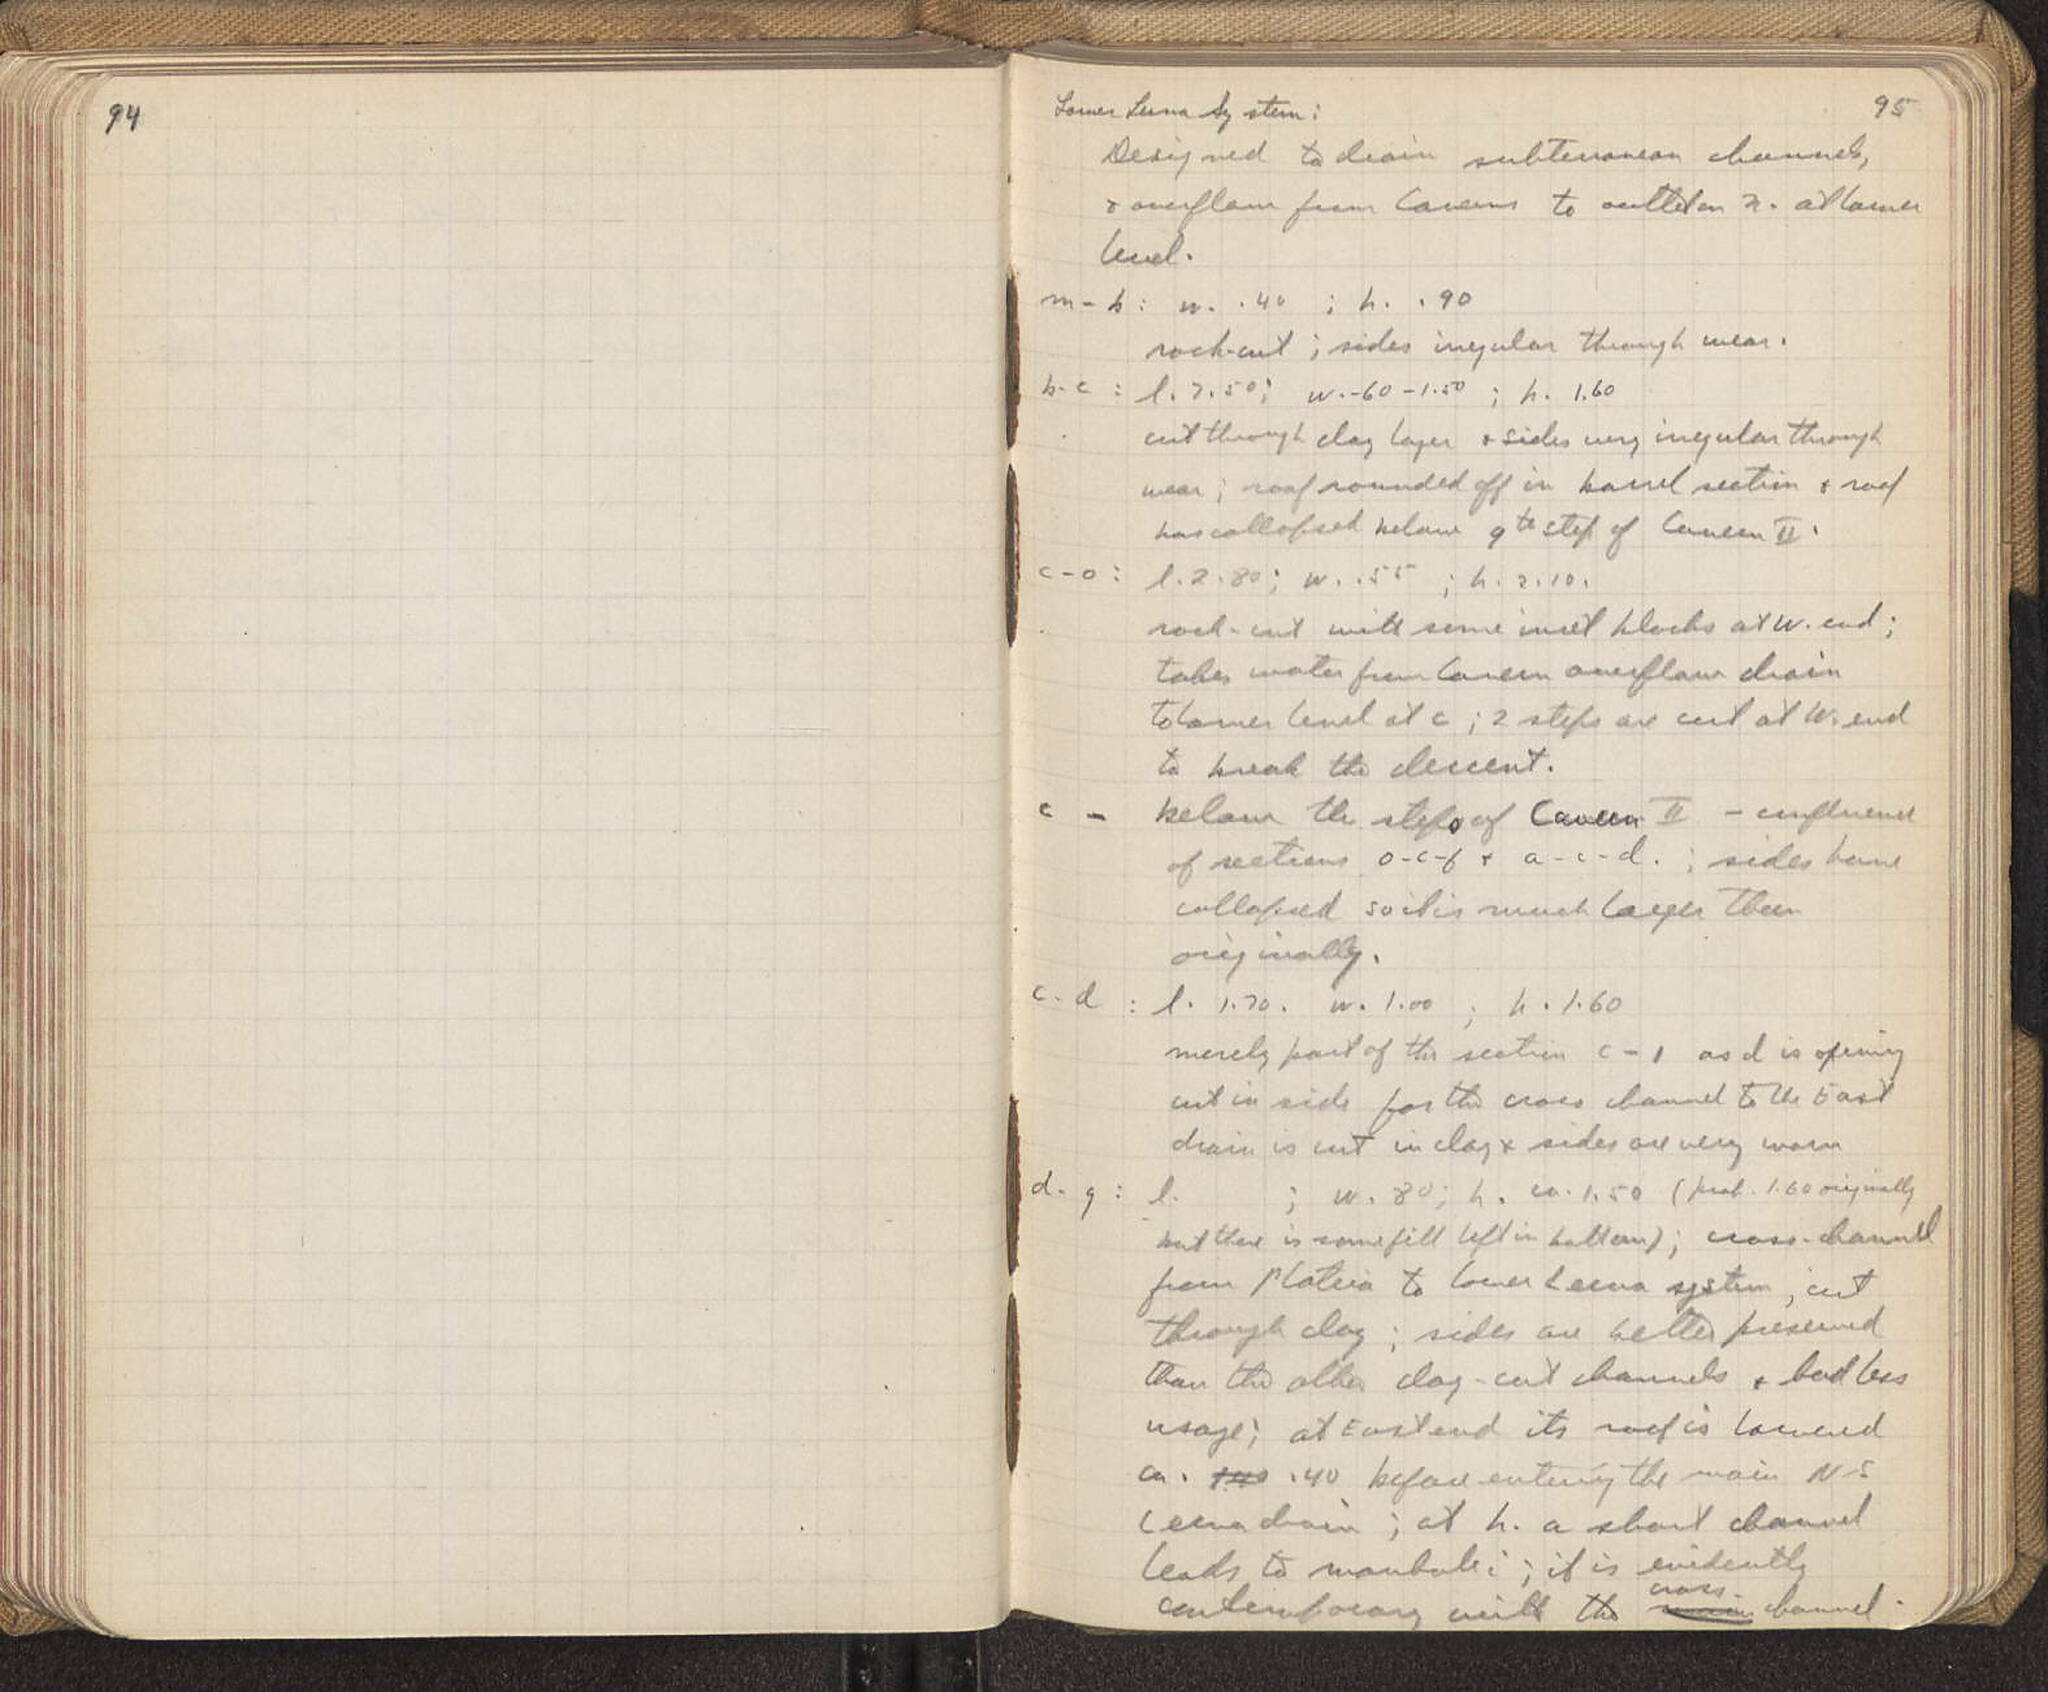 94
95
Lower Lerna System:
Designed to drain subterranean channels,
& overflow from Cavern to outlet on N. at lower
level.
m-b: w. .40 ; h. .90
rock-cut ; sides irregular through wear.
b-c : l. 7.50; w. .60-1.50 ; h. 1.60
cut through clay layer & sides very irregular through
wear ; roof rounded off in barrel section & roof
has collapsed below 9th step of Cavern II.
c-o : l. 2.80; w. .55 ; h. 2.10.
rock-cut with some inset blocks at W. end ;
takes water from Cavern overflow drain
to lower level at c ; 2 steps are cut at W. end
to break the descent.
c - below the steps of Cavern II - confluence
of sections o-c-b & a-c-d. ; sides have
collapsed so it is much larger than
originally.
c-d : l. 1.70. w. 1.00 ; h. 1.60
merely part of the section c-1 as d is opening
cut in side for the cross channel to the East
drain is cut in clay & sides are very worn
d-g : l. ; w. 80; h. ca. 1.50 (prob. 1.60 originally
but there is some fill left in bottom) ; cross-channel
from Plateia to lower Lerna system ; cut
through clay ; sides are better preserved
than the other clay-cut channels & had less
usage; at East end its roof is lowered
ca. .40 before entering the main N-S
Lerna drain ; at h. a short channel
leads to manhole i ; it is evidently
contemporary with the main cross-channel.